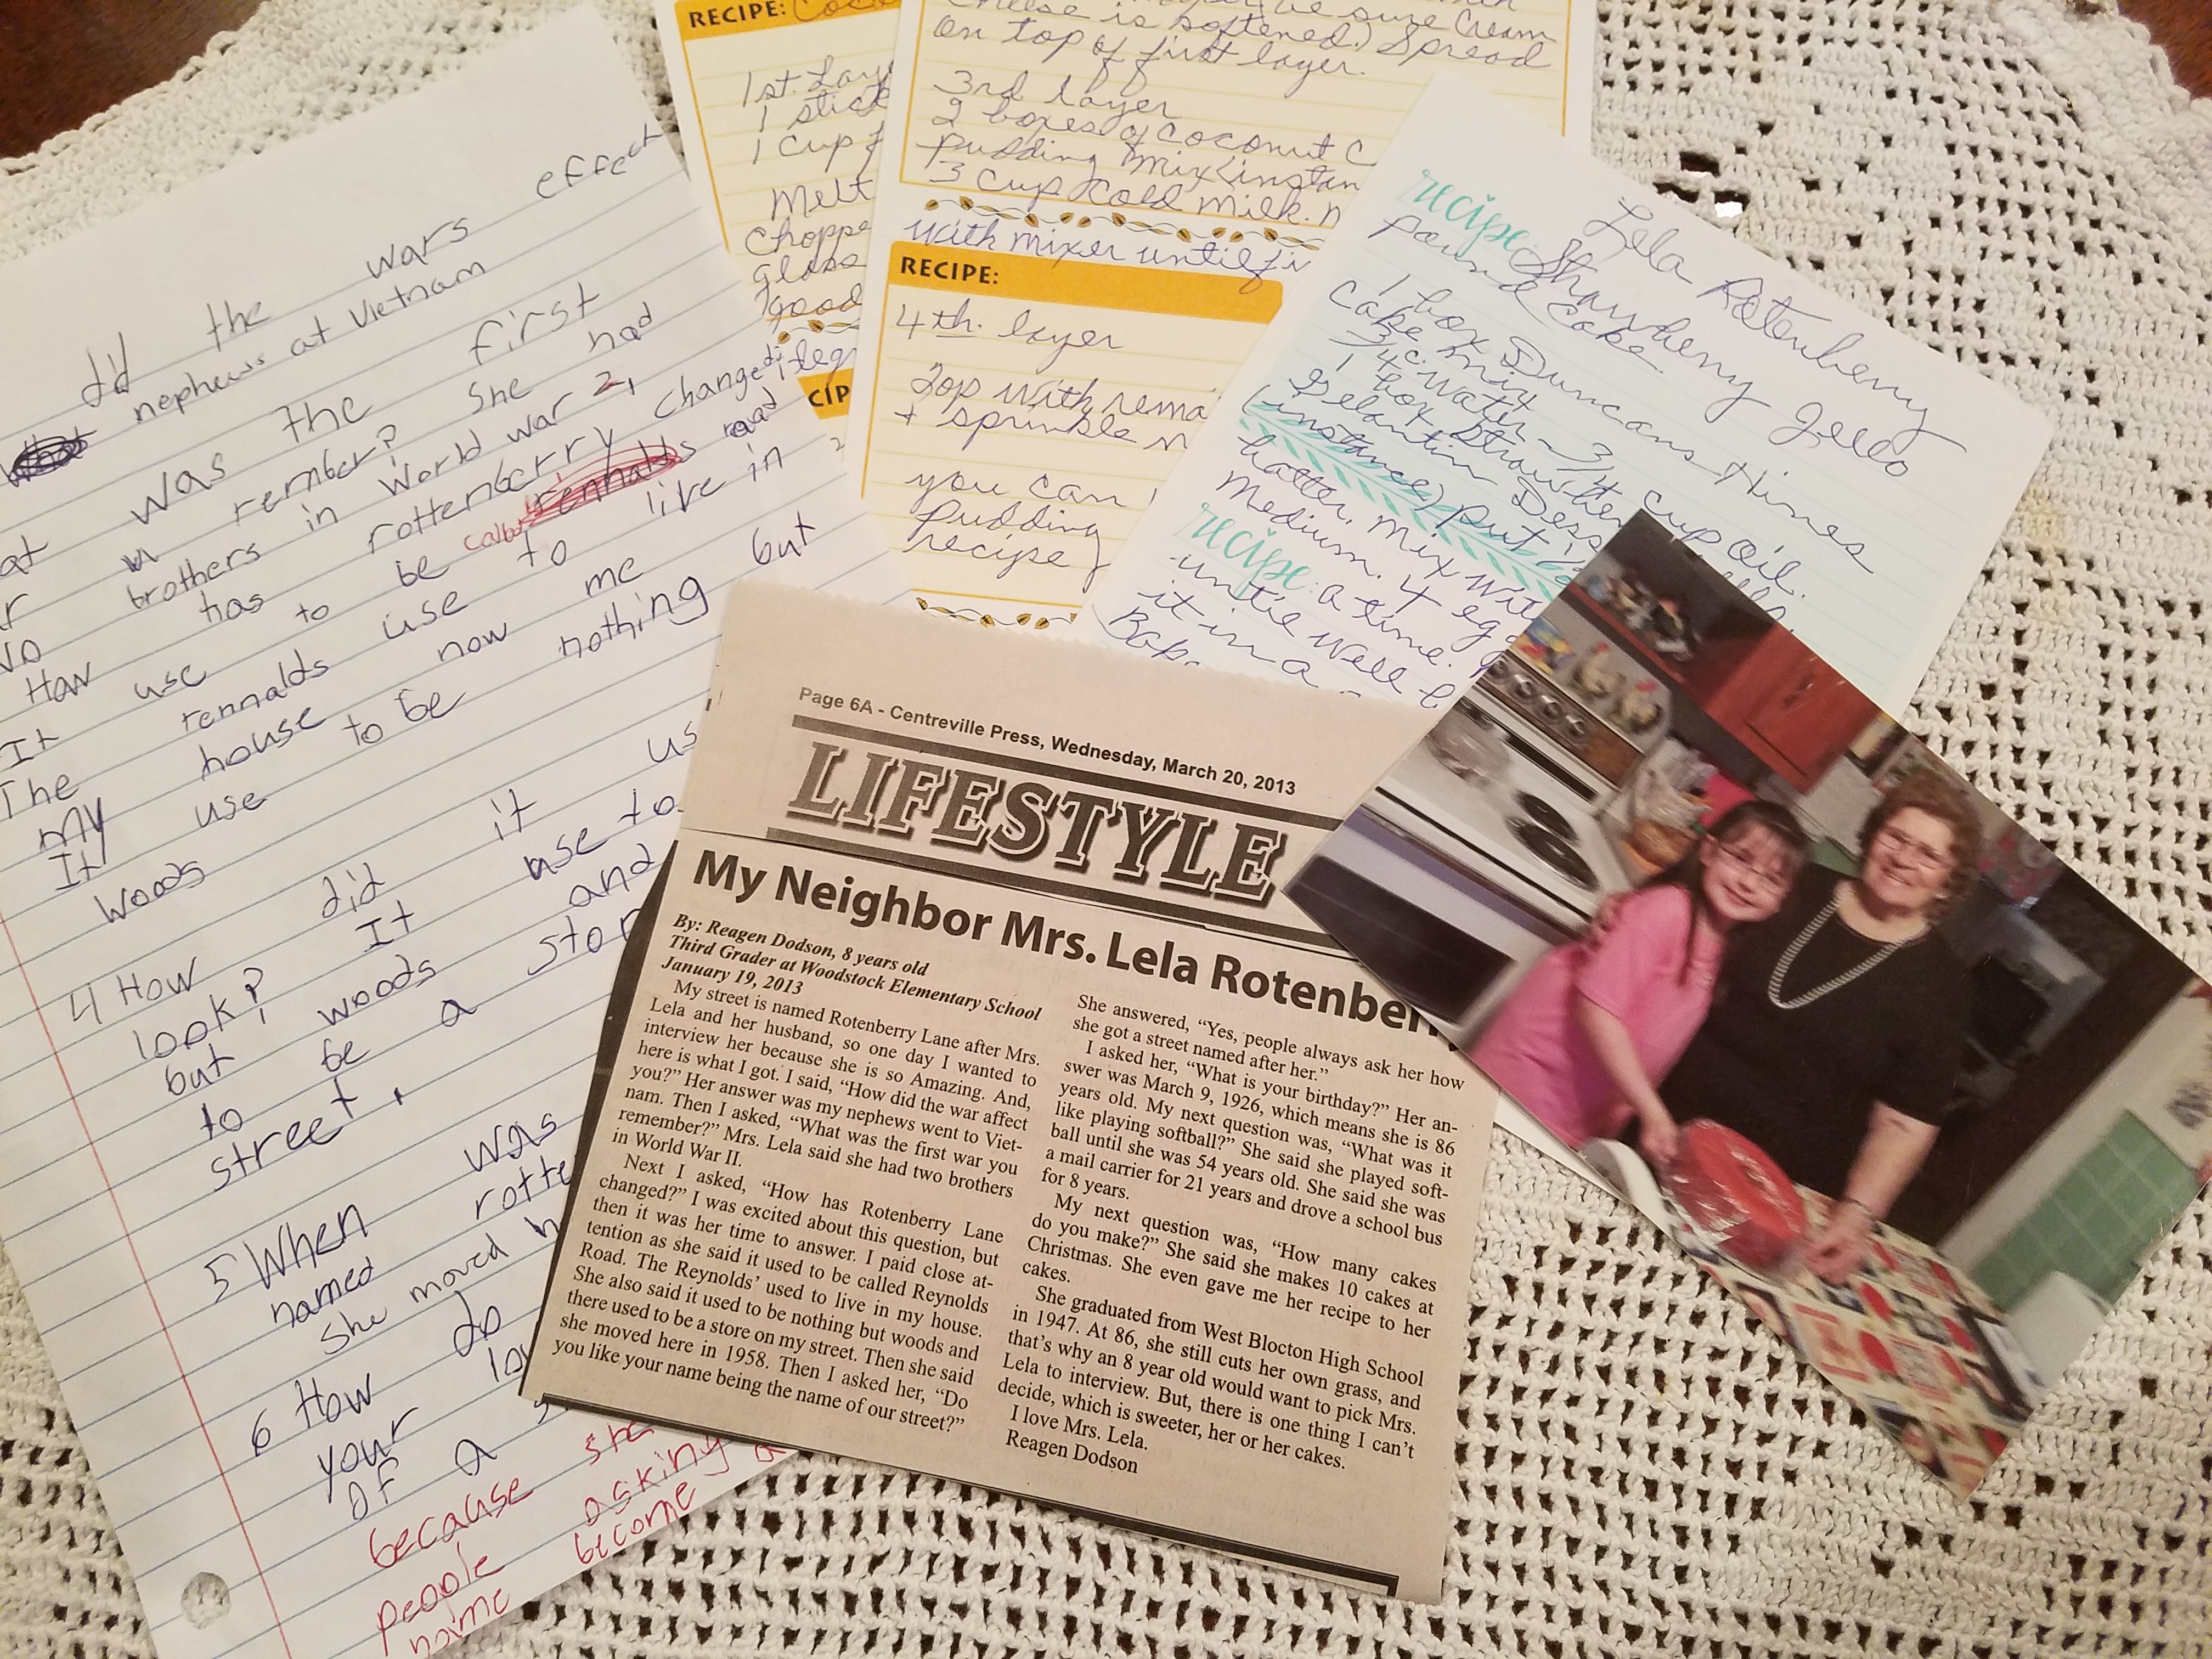 did the wars effect
nephews at Vietnam
was the first
remember? She had
brothers in World war 2,
How has rottenberry changed
It use to be
The rennalds use to live in
my house now me
It use to be nothing but
woods
4 How did it us
look? It use to
but woods and
to be a stor
street.
5 When was
named rotte
She moved h
6 How do
your
OF a
because
people asking
name become a
RECIPE: Coco
1st. Lay
1 stick
1 cup f
Melt
Choppe
glass
good
cheese is softened.) Spread
on top of first layer.
3rd layer
2 boxes of coconut C
pudding mix (instan
3 cup cold milk. n
with mixer until fi
RECIPE:
4th. layer
Top with rema
+ sprinkle n
you can
pudding
recipe
Lela Rotenberry
recipe: Strawberry Jello
Pound Cake.
1 box Duncans Hines
Cake mix
3/4 c. Water - 3/4 cup oil.
1 box Strawber
Gelantin Dess
(instance) put i
batter. mix wit
medium. 4 eg
recipe: a time.
until well b
it in a
Page 6A - Centreville Press, Wednesday, March 20, 2013
LIFESTYLE
My Neighbor Mrs. Lela Rotenber
By: Reagen Dodson, 8 years old
Third Grader at Woodstock Elementary School
January 19, 2013
My street is named Rotenberry Lane after Mrs.
Lela and her husband, so one day I wanted to
interview her because she is so Amazing. And,
here is what I got. I said, "How did the war affect
you?" Her answer was my nephews went to Viet-
nam. Then I asked, "What was the first war you
remember?" Mrs. Lela said she had two brothers
in World War II.
Next I asked, "How has Rotenberry Lane
changed?" I was excited about this question, but
then it was her time to answer. I paid close at-
tention as she said it used to be called Reynolds
Road. The Reynolds' used to live in my house.
She also said it used to be nothing but woods and
there used to be a store on my street. Then she said
she moved here in 1958. Then I asked her, "Do
you like your name being the name of our street?"
She answered, "Yes, people always ask her how
she got a street named after her."
I asked her, "What is your birthday?" Her an-
swer was March 9, 1926, which means she is 86
years old. My next question was, "What was it
like playing softball?" She said she played soft-
ball until she was 54 years old. She said she was
a mail carrier for 21 years and drove a school bus
for 8 years.
My next question was, "How many cakes
do you make?" She said she makes 10 cakes at
Christmas. She even gave me her recipe to her
cakes.
She graduated from West Blocton High School
in 1947. At 86, she still cuts her own grass, and
that's why an 8 year old would want to pick Mrs.
Lela to interview. But, there is one thing I can't
decide, which is sweeter, her or her cakes.
I love Mrs. Lela.
Reagen Dodson